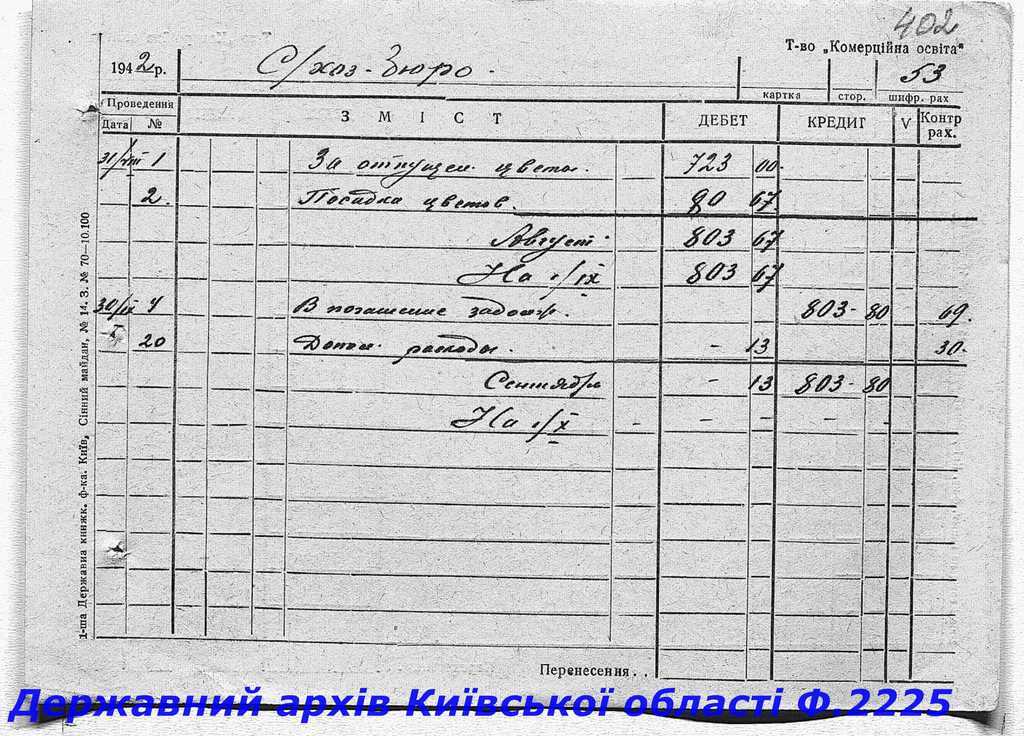 402
Т-во „Комерційна освіта“
1942 р. С/хоз-Бюро. 53
картка стор. шифр. рах
Проведення З М І С Т ДЕБЕТ КРЕДИТ V Контр рах.
Дата №
31/VIII 1 За отпущен. цветы. 723 00
2. Посадка цветов. 80 67
Август 803 67
На 1/IX 803 67
30/IX 4 В погашение задолж. 803 - 80 69.
20 Допол. расходы. - 13 30.
Сентябрь - 13 803 - 80
На 1/X - - - - -
Перенесення . .
1-ша Державна книжк. ф-ка. Київ, Сінний майдан, № 14. З. № 70—10.100
Державний архів Київської області Ф.2225